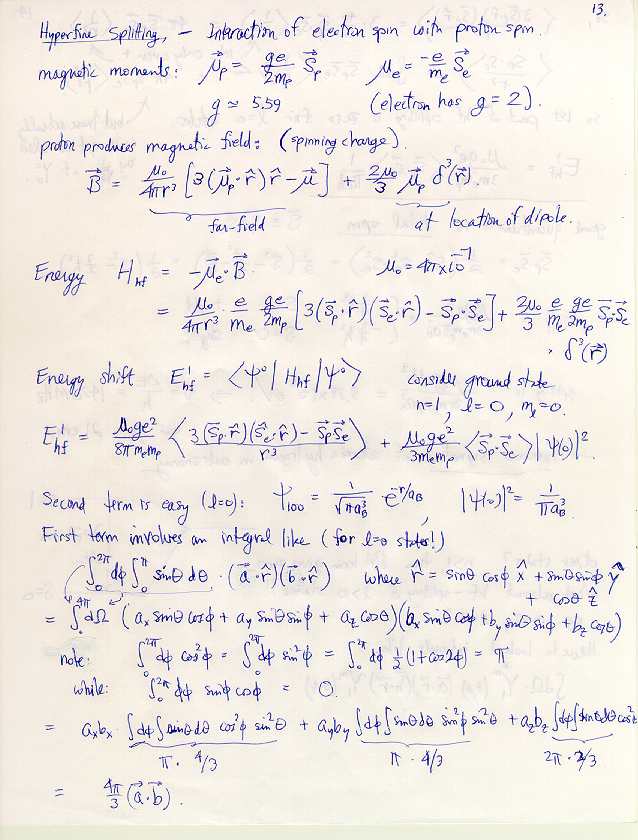 13.
Hyperfine Splitting, – Interaction of electron spin with proton spin.
magnetic moments: μ⃗_p = ge/2m_p S⃗_p   μ⃗_e = -e/m_e S⃗_e
g ≃ 5.59   (electron has g = 2).
proton produces magnetic field: (spinning charge).
B⃗ = μ₀/4πr³ [3(μ⃗_p·r̂)r̂ − μ⃗] + 2μ₀/3 μ⃗_p δ³(r⃗).
far-field   at location of dipole.
Energy H_hf = −μ⃗_e·B⃗.   μ₀ = 4π×10⁻⁷
= μ₀/4πr³ e/m_e ge/2m_p [3(S⃗_p·r̂)(S⃗_e·r̂) − S⃗_p·S⃗_e] + 2μ₀/3 e/m_e ge/2m_p S⃗_p·S⃗_e
· δ³(r⃗)
Energy shift E'_hf = ⟨ψ⁰| H_hf |ψ⁰⟩   consider ground state
n=1, l=0, m_l=0.
E'_hf = μ₀ge²/8πm_pm_e ⟨ 3(S⃗_p·r̂)(S⃗_e·r̂) − S⃗_p·S⃗_e / r³ ⟩ + μ₀ge²/3m_em_p ⟨S⃗_p·S⃗_e⟩|ψ(0)|².
Second term is easy (l=0): ψ₁₀₀ = 1/√(πa_B³) e^(-r/a_B), |ψ(0)|² = 1/πa_B³.
First term involves an integral like (for l=0 states!)
∫₀^2π dφ ∫₀^π sinθ dθ · (a⃗·r̂)(b⃗·r̂)   where r̂ = sinθ cosφ x̂ + sinθ sinφ ŷ
+ cosθ ẑ
= ∫₀^4π dΩ (a_x sinθ cosφ + a_y sinθ sinφ + a_z cosθ)(b_x sinθ cosφ + b_y sinθ sinφ + b_z cosθ)
note: ∫₀^2π dφ cos²φ = ∫₀^2π dφ sin²φ = ∫₀^2π dφ ½(1+cos2φ) = π
while: ∫₀^2π dφ sinφ cosφ = 0.
= a_xb_x · ∫dφ∫sinθdθ cos²φ sin²θ + a_yb_y ∫dφ∫sinθdθ sin²φ sin²θ + a_zb_z ∫dφ∫sinθdθ cos²θ
π · 4/3   π · 4/3   2π · 2/3
= 4π/3 (a⃗·b⃗).